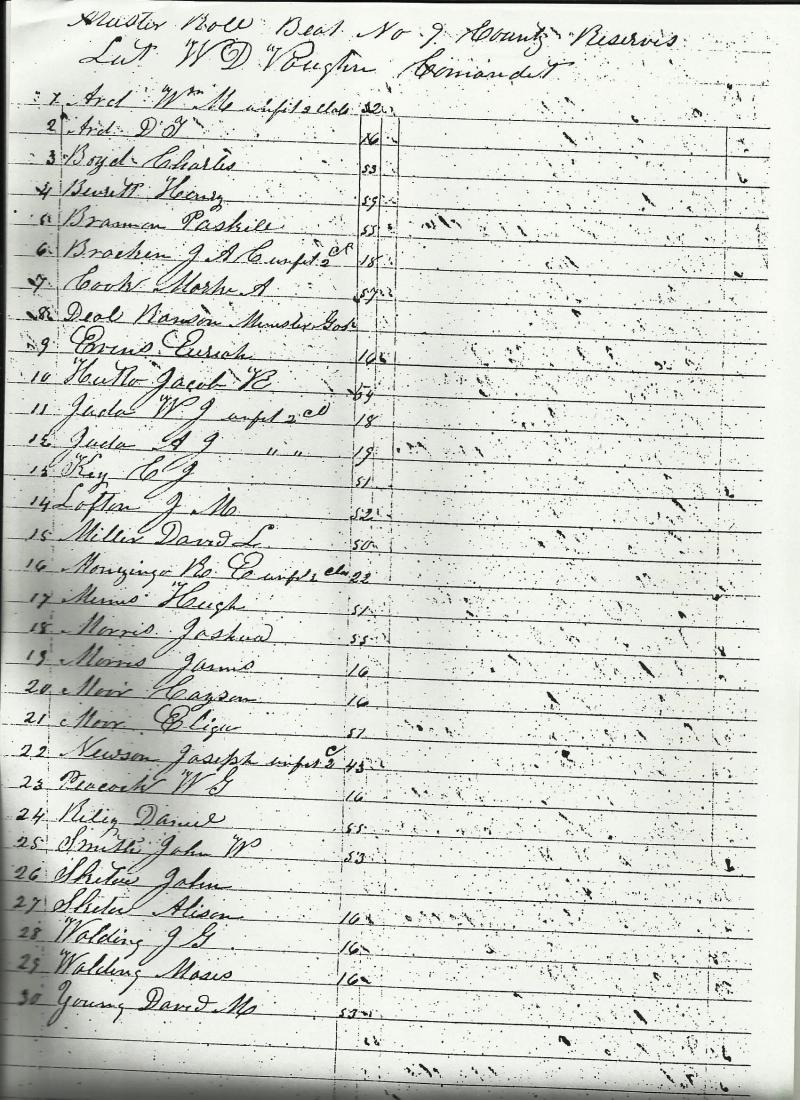 Muster Role Beat No 9 County Reservis
Lut W D Vaughn Comandet
1 Ard Wm M unfit 2 clas 32
2 Ard D T 16
3 Boyd Charles 53
4 Henry 55
5 Paskile 55
6 Bracken J A C unfit 2 cl 18
7 Cook A 57
8 Deal Ranson Minister Gos
9 Evens Euriah 16
10 Hutto Jacob 54
11 Juda W J unfit 2 cl 18
12 Juda A J " " 19
13 Key C J 51
14 Lofton J M 52
15 Miller David L 50
16 Monzingo Ro E unfit 2 clas 22
17 Mims Hugh 51
18 Morris Joshua 55
19 Morris James 16
20 Moor 16
21 Moor 51
22 Newson Joseph unfit 2 c 43
23 Peacock W G 16
24 Riley Daniel 55
25 Smith John W 53
26 John
27 Alison 16
28 Walding J G 16
29 Walding Moses 16
30 Young David M 53